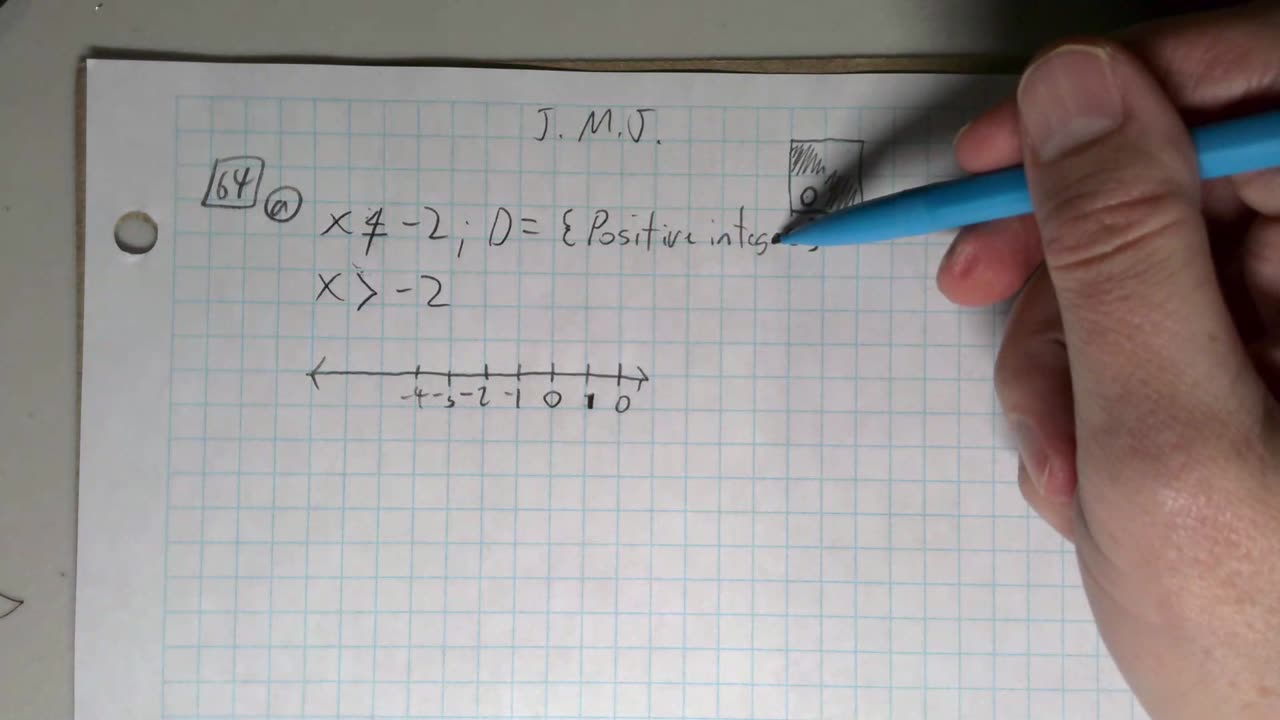 J. M. J.
64 a x ≮ -2 ; D = { Positive integ
x > -2
-4 -3 -2 -1 0 1 0